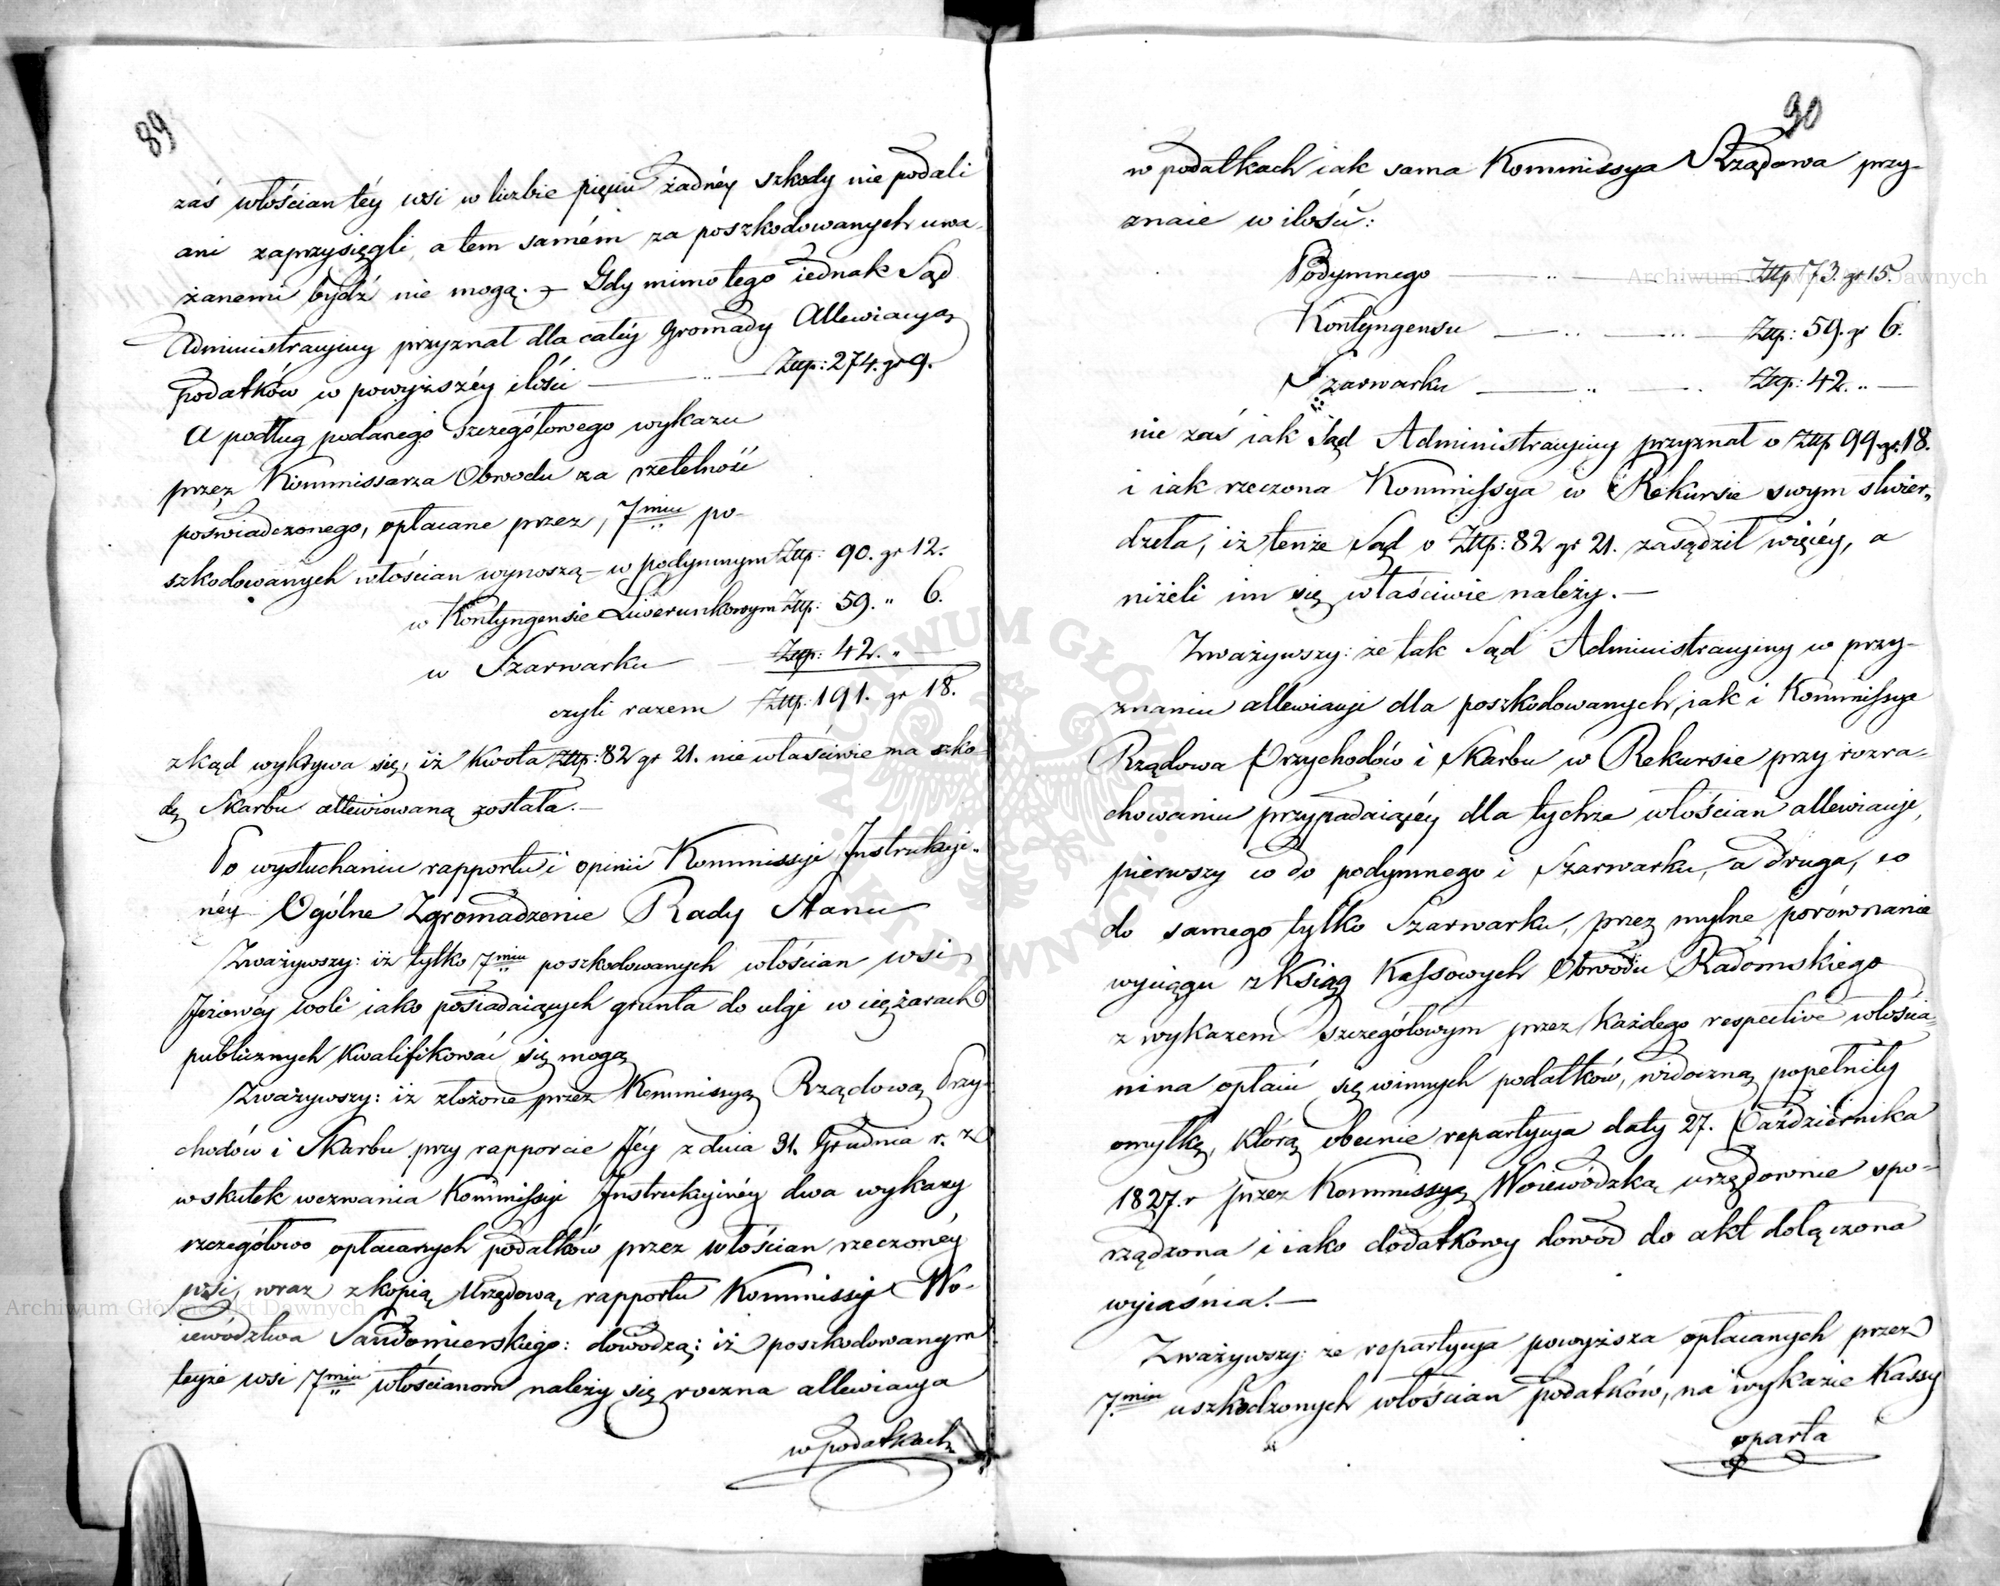 89
zaś włościan téy wsi w liczbie pięciu żadnéy szkody nie podali
ani zaprzysięgli, a tem samém za poszkodowanych uwa-
żanemi bydź nie mogą. — Gdy mimo tego iednak Sąd
Administracyiny przyznał dla całéy Gromady Allewiacyą
podatków w powyższéy ilości — „ — Złłp: 274. gr 9.
A podług podanego szczegółowego wykazu
przez Kommissarza Obwodu za rzetelność
poświadczonego, opłacane przez 7miu po-
szkodowanych włościan wynoszą — w podymnym Złłp: 90. gr 12.
w Kontyngensie Liwerunkowym Złłp: 59. „ 6.
w Szarwarku — Złłp: 42. „ —
czyli razem Złłp: 191. gr 18.
zkąd wykrywa się, iż kwota Złłp: 82 gr 21. nie właściwie na szko-
dę Skarbu allewiowaną została. —
Po wysłuchaniu rapportu i opinii Kommissyi Instrukcyi-
néy Ogólne Zgromadzenie Rady Stanu
Zważywszy: iż tylko 7miu poszkodowanych włościan wsi
Jeżowéy woli iako posiadaiących grunta do ulgi w ciężarach
publicznych kwalifikować się mogą
Zważywszy: iż złożone przez Kommissyą Rządową Przy-
chodów i Skarbu przy rapporcie Jéy z dnia 31. Grudnia r. z.
w skutek wezwania Kommissyi Instrukcyinéy dwa wykazy
szczegółowo opłacanych podatków przez włościan rzeczonéy
wsi, wraz z kopią Urzędową rapportu Kommissyi Wo-
iewództwa Sandomierskiego: dowodzą: iż poszkodowanym
teyże wsi 7miu włościanom należy się roczna allewiacya
w podatkach
90
w podatkach iak sama Kommissya Rządowa przy-
znaie w ilości:
Podymnego — „ — Złłp 73. gr 15.
Kontyngensu — „ — „ — Złłp: 59. gr 6.
Szarwarku — „ — „ Złłp: 42. „ —
nie zaś iak Sąd Administracyiny przyznał o Złłp 99 gr. 18.
i iak rzeczona Kommissya w Rekursie swym stwier-
dzeła, iż tenże Sąd o Złłp: 82 gr 21. zasądził więcéy, a
niżeli im się właściwie należy. —
Zważywszy: że tak Sąd Administracyiny w przy-
znaniu allewiacyi dla poszkodowanych, iak i Kommissya
Rządowa Przychodów i Skarbu w Rekursie przy rozra-
chowaniu przypadaiącéy dla tychże włościan allewiacyi,
pierwszy co do podymnego i Szarwarku, a druga, co
do samego tylko Szarwarku, przez mylne porównanie
wyciągu z Ksiąg Kassowych Obwodu Radomskiego
z wykazem szczegółowym przez każdego respective włościa-
nina opłacić się winnych podatków, widoczną popełniły
omyłkę, którą obecnie repartycya daty 27. Października
1827. r przez Kommissyą Woiewódzką urzędownie spo-
rządzona i iako dodatkowy dowód do akt dołączona
wyiaśnia. —
Zważywszy: że repartycya powyższa opłacanych przez
7miu uszkodzonych włościan podatków, na wykazie Kassy
oparta
Archiwum Główne Akt Dawnych
Archiwum Główne Akt Dawnych
ARCHIWUM GŁÓWNE AKT DAWNYCH